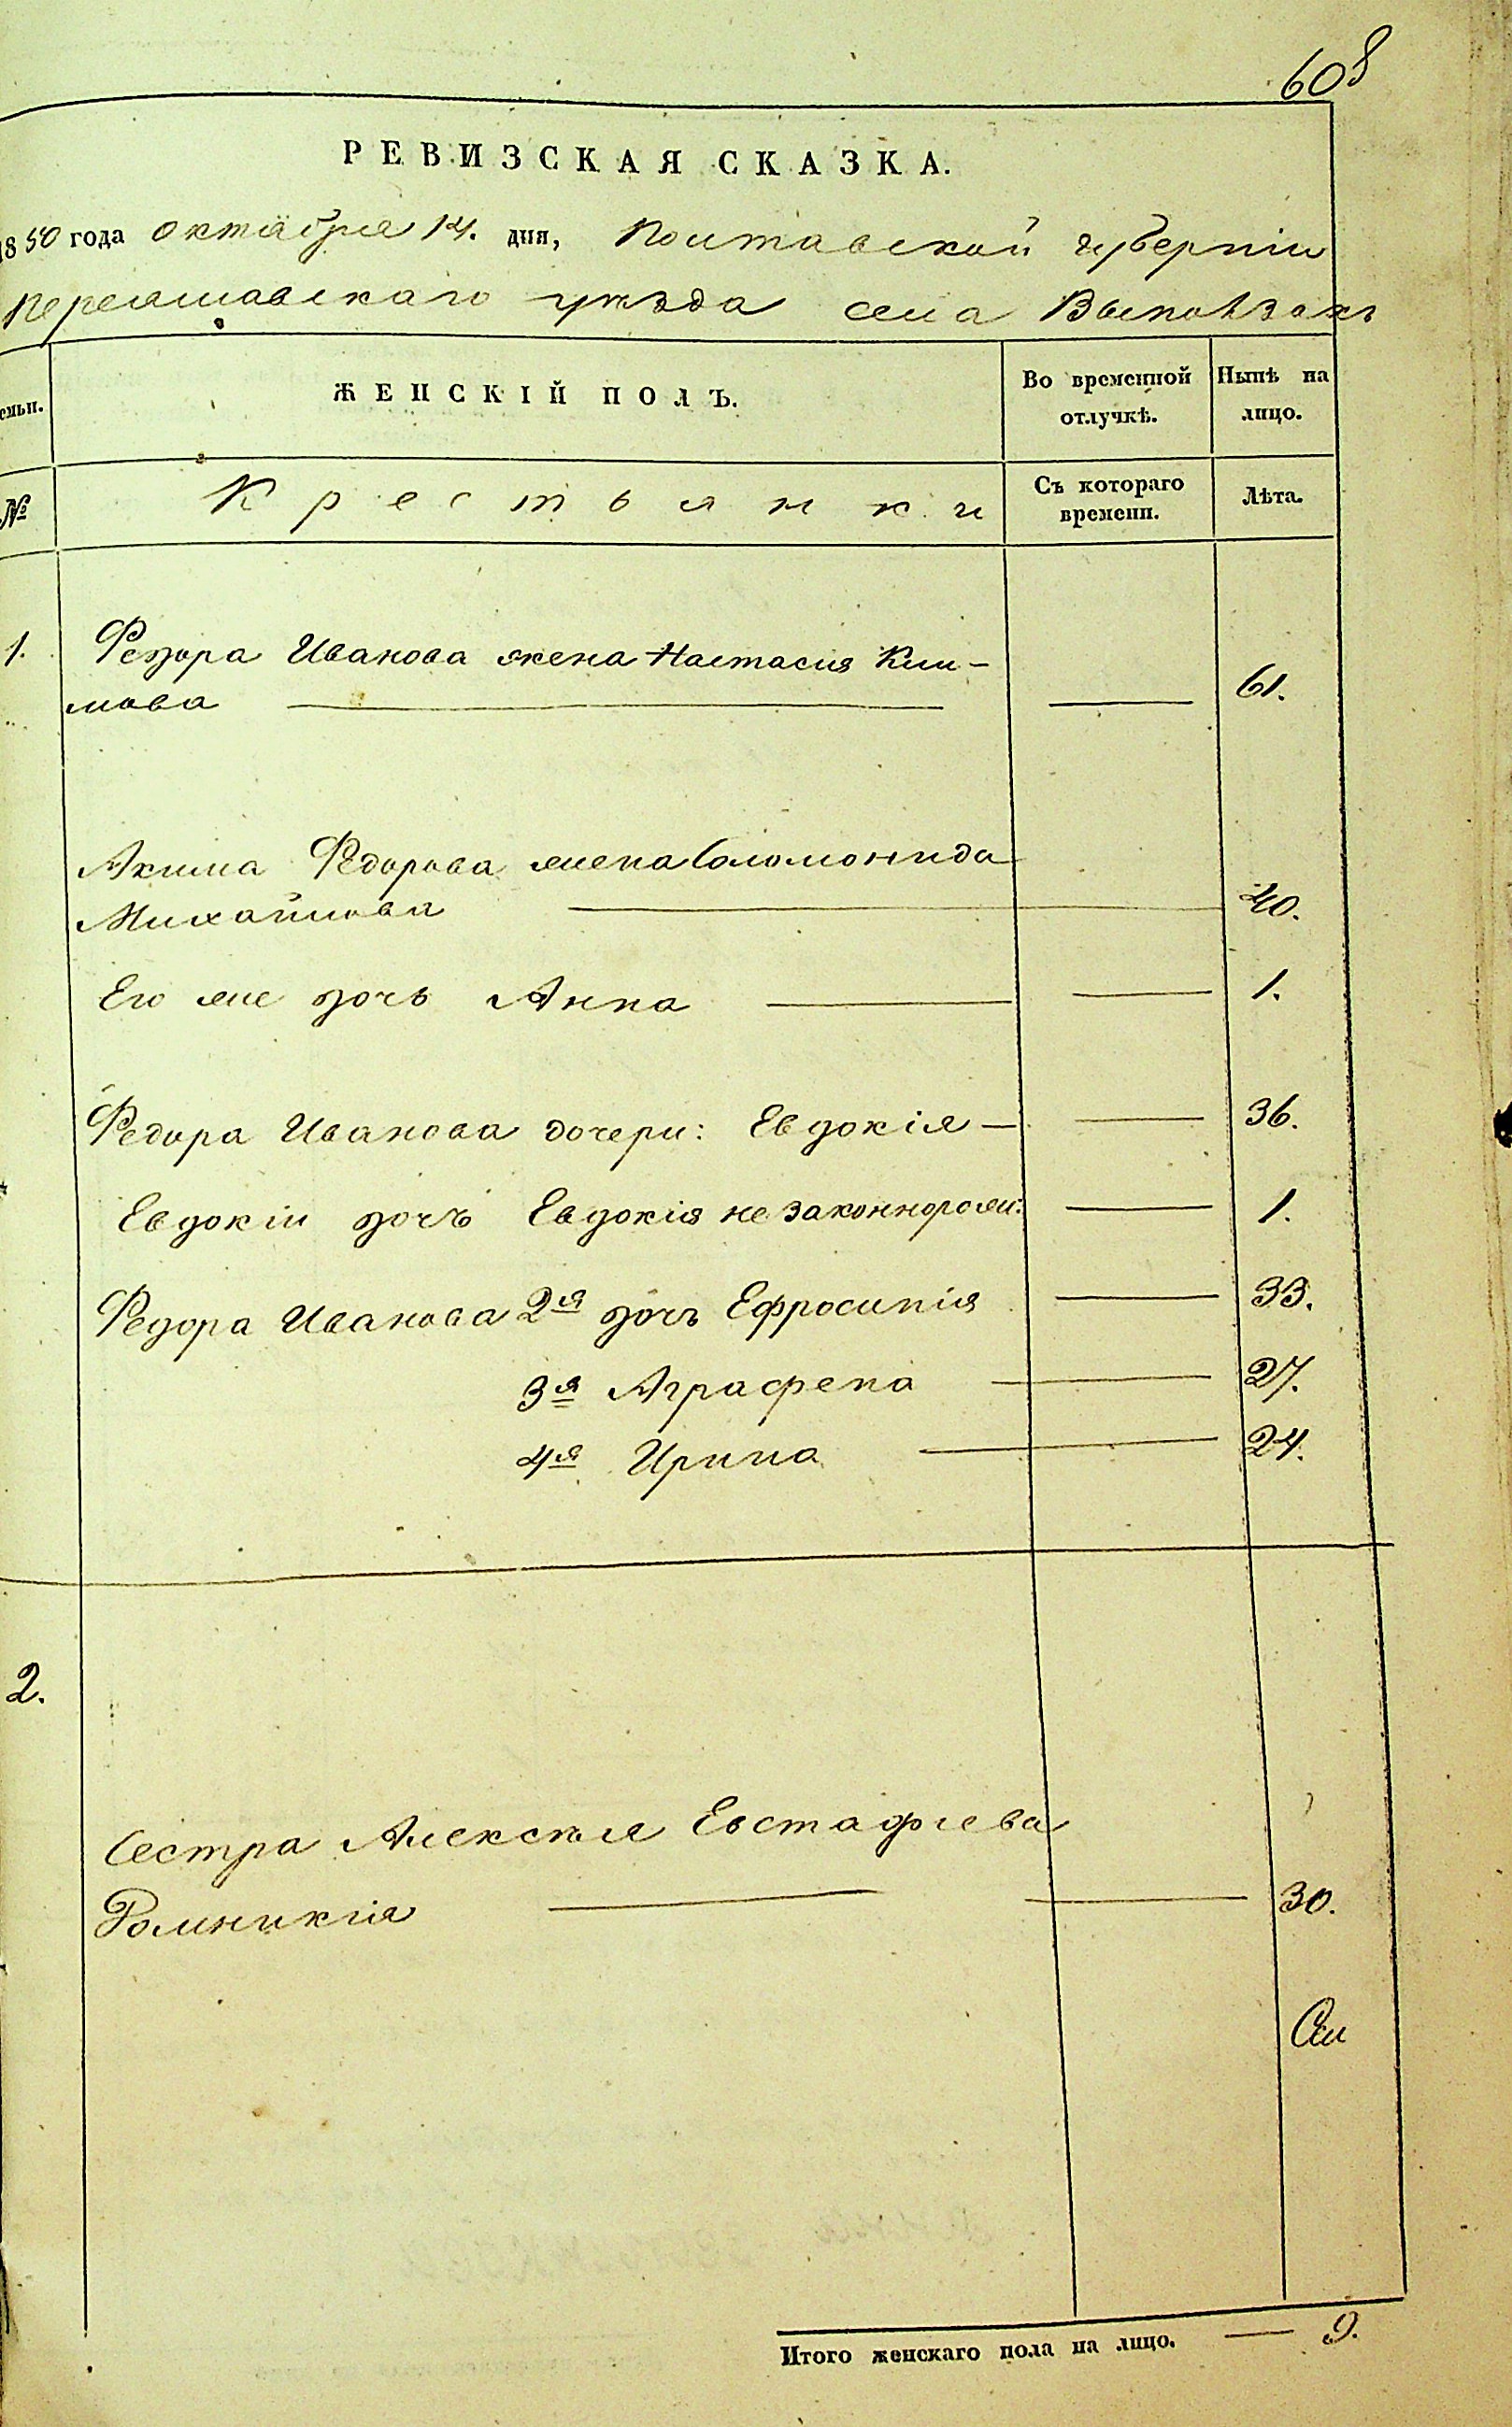 608
РЕВИЗСКАЯ СКАЗКА.
1850 года октября 14. дня, Полтавской губерніи
Переяславскаго уезда села Выползокъ
семьи. ЖЕНСКІЙ ПОЛЪ. Во временной отлучкѣ. Нынѣ на лицо.
№ Крестьянки Съ котораго времени. Лѣта.
1. Федора Иванова жена Настасия Кли-
мова 61.
Акима Федорова жена Соломонида
Михайлова 40.
Его же дочь Анна 1.
Федора Иванова дочери: Евдокія 36.
Евдокіи дочь Евдокія незаконнорож: 1.
Федора Иванова 2я дочь Ефросинія 33.
3я Аграфена 27.
4я Ирина 24.
2.
Сестра Алексея Евстафиева
30.
Итого женскаго пола на лицо. 9.